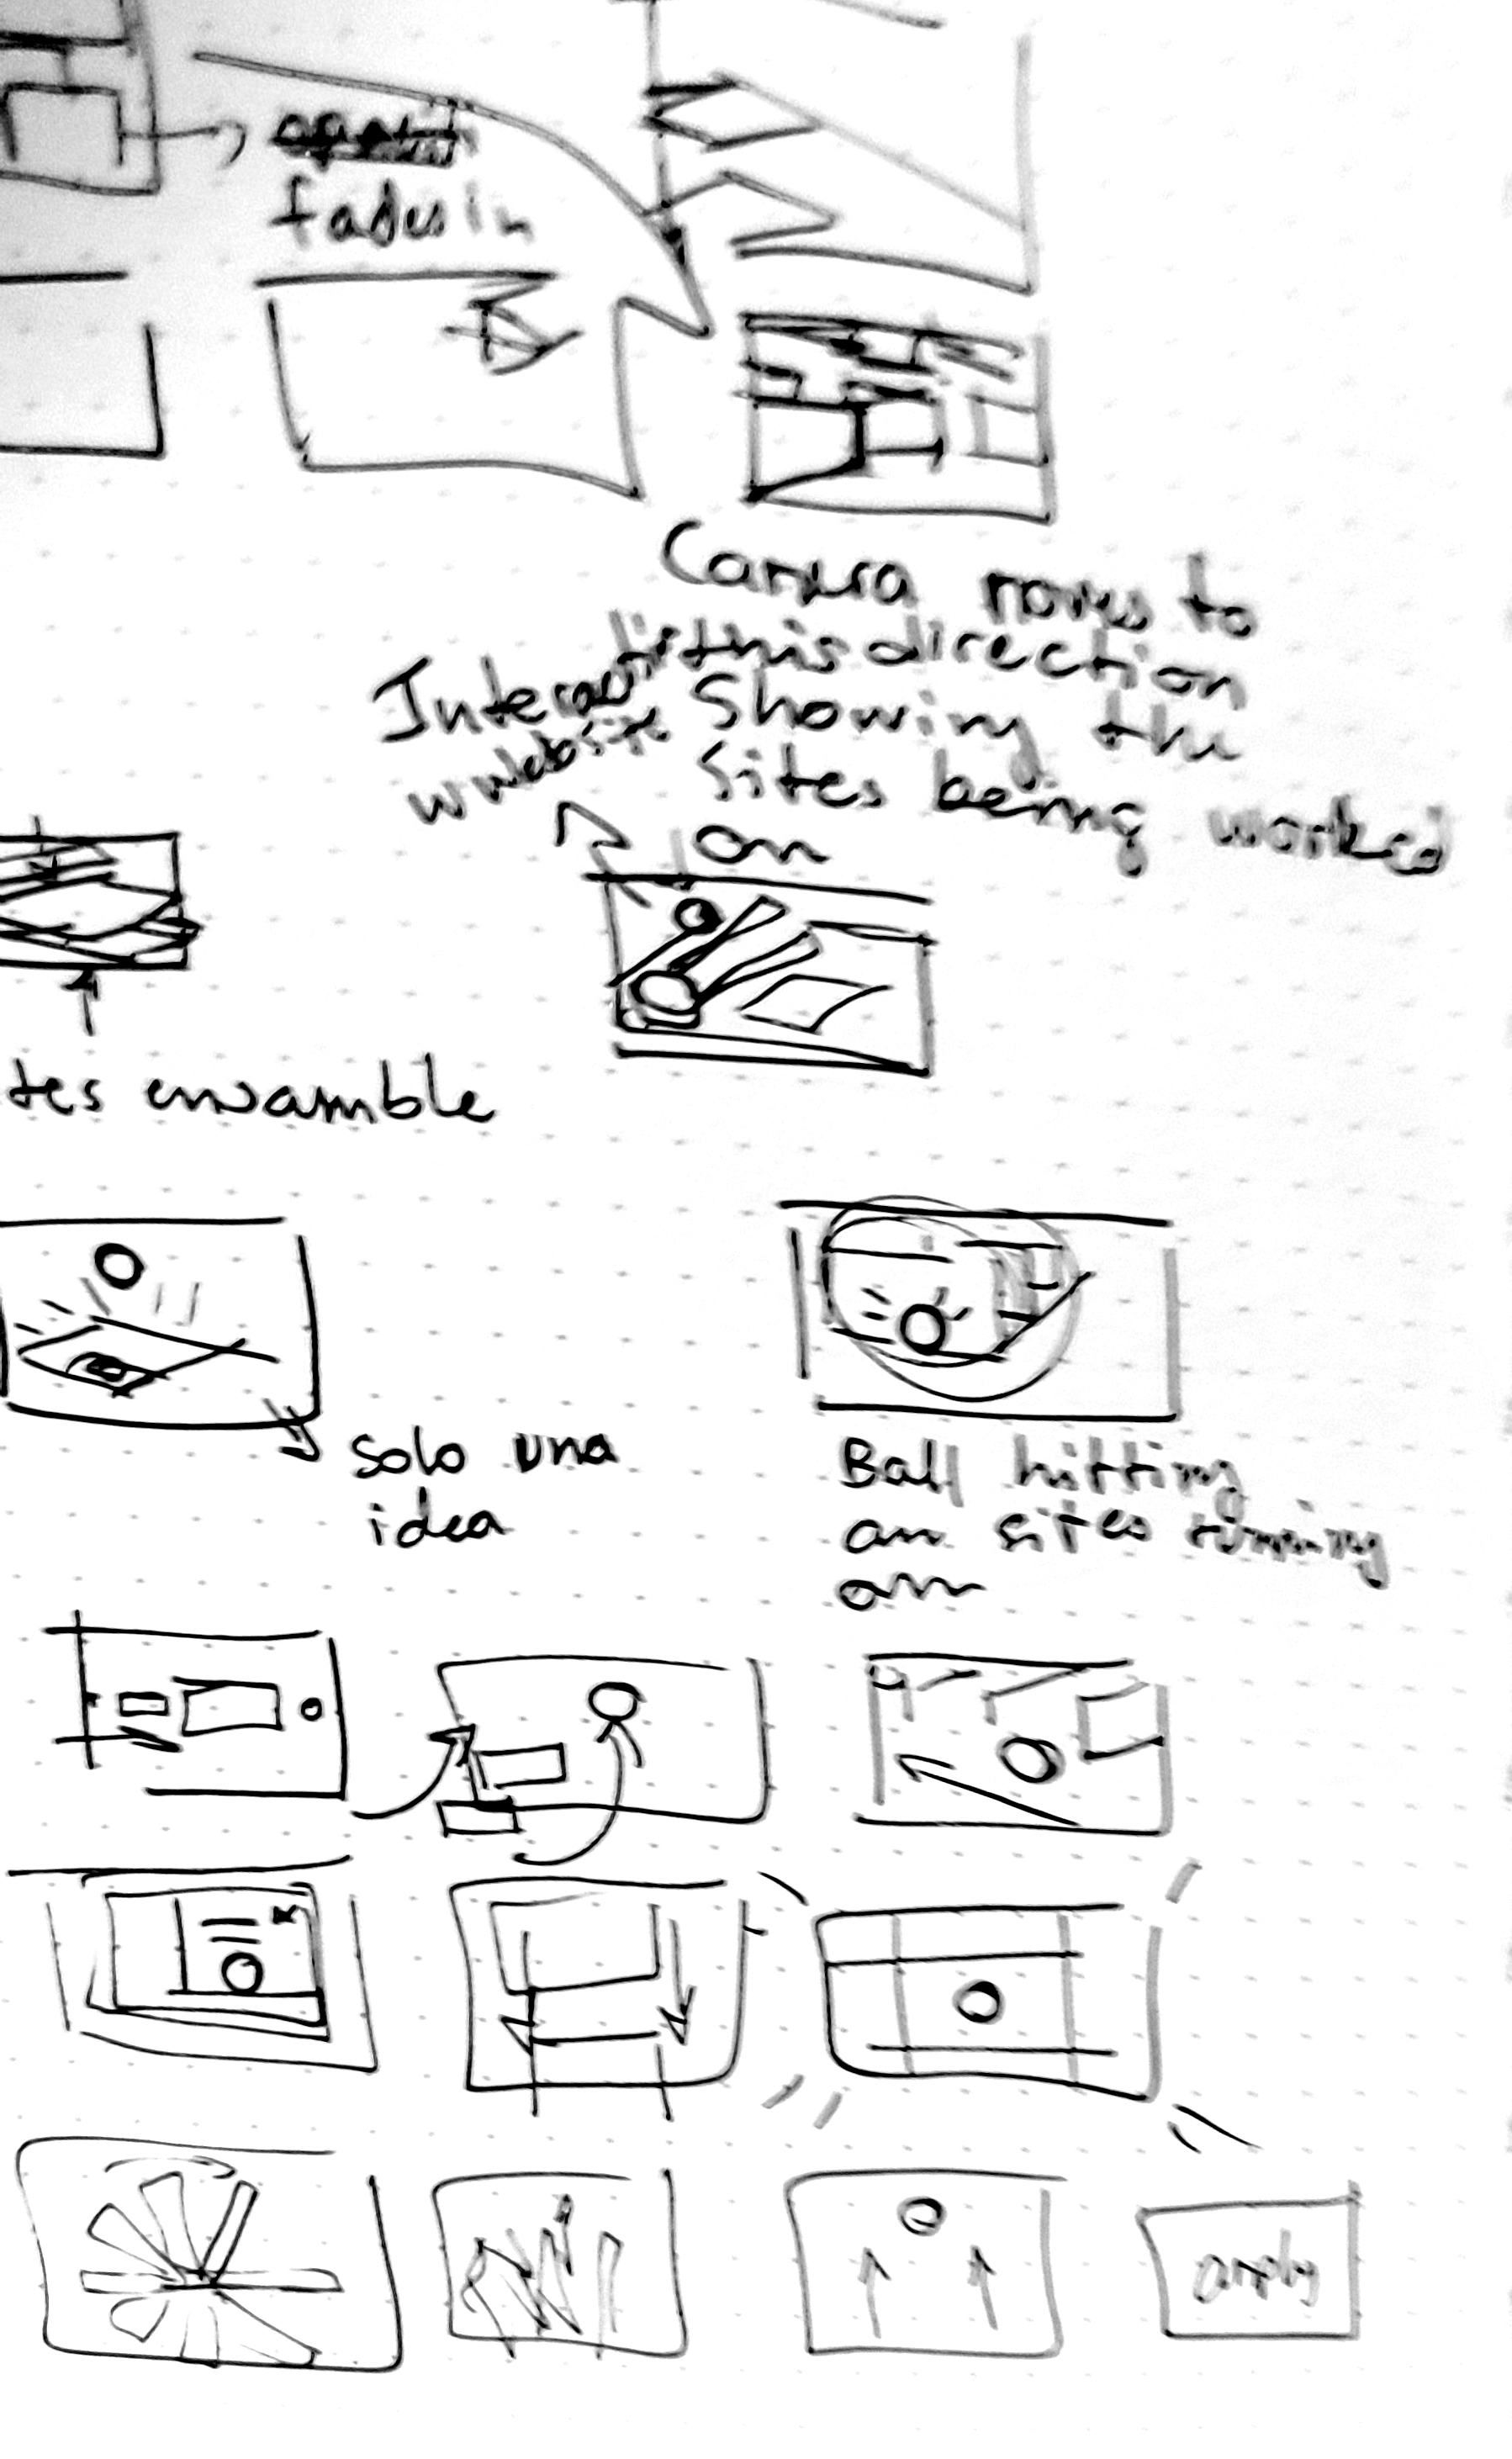 fades in
Camera moves to
this direction
Interactive
website
Showing the
Sites being worked
on
tes ensamble
solo una
idea
Ball hitting
an sites running
on